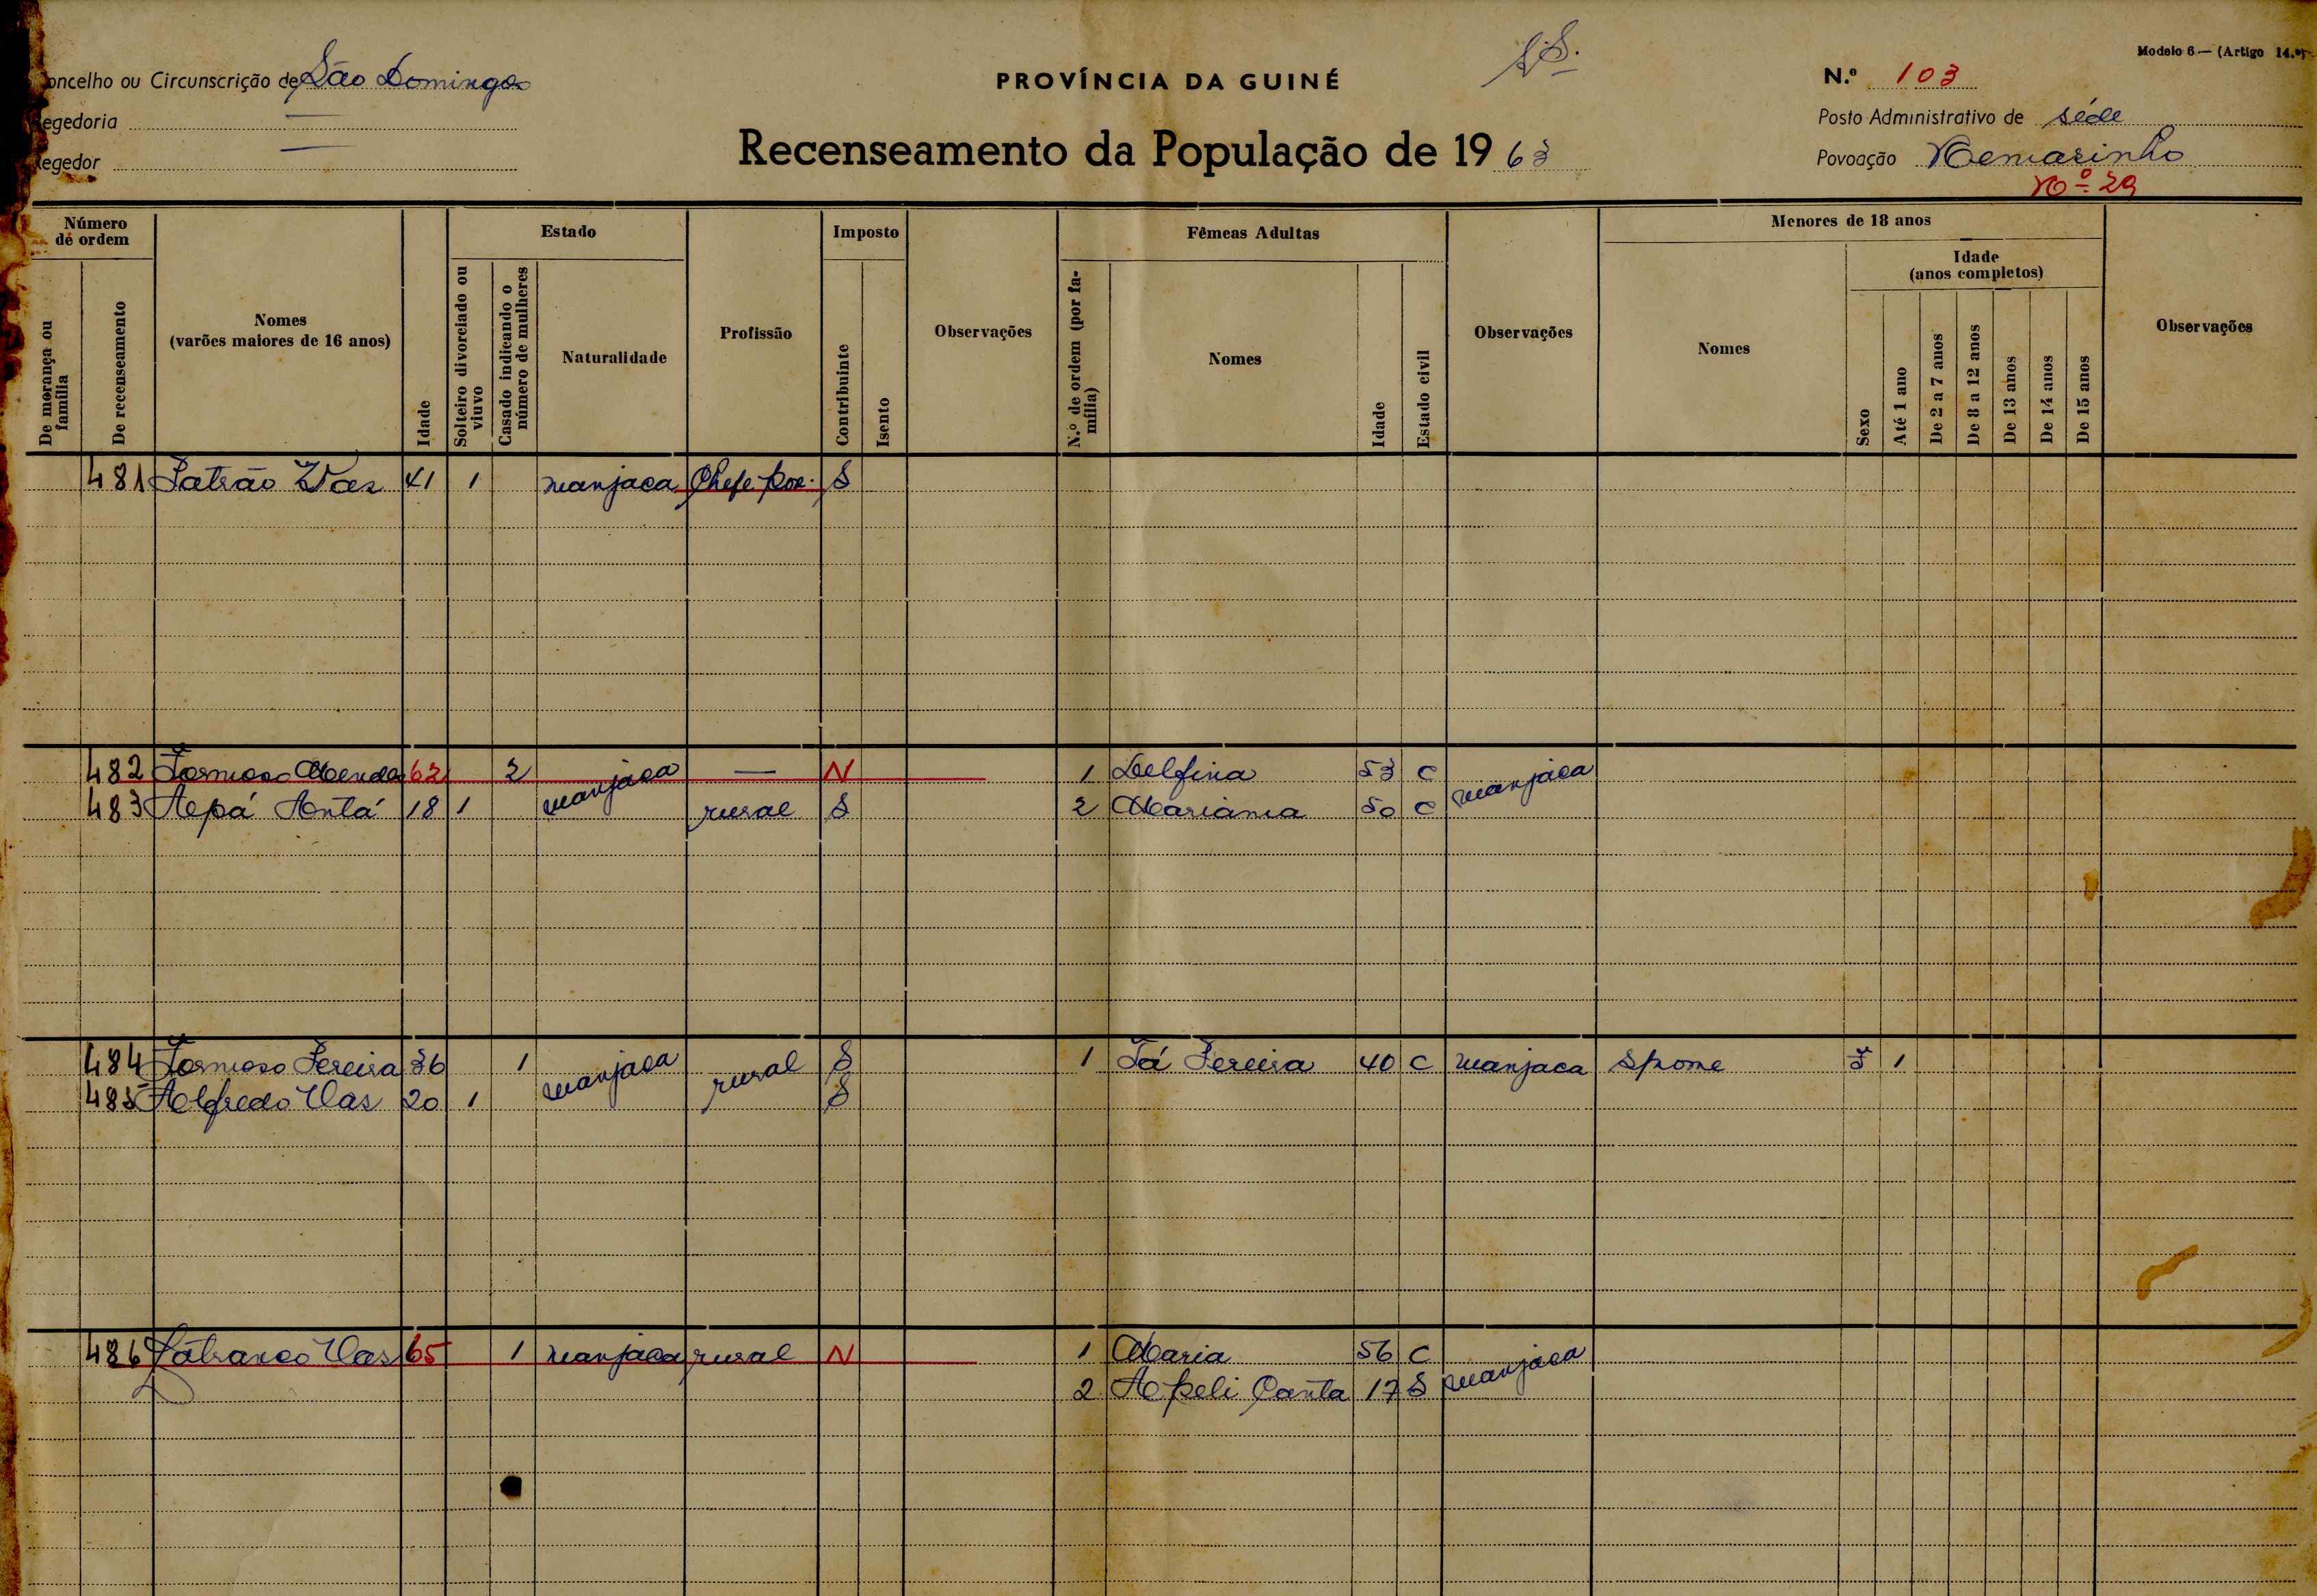 S.S.
Modelo 6 — (Artigo 14.º)
Concelho ou Circunscrição de São Domingos
PROVÍNCIA DA GUINÉ
N.º 103
Regedoria —
Posto Administrativo de Séde
Regedor —
Recenseamento da População de 1963
Povoação Nemarinho
Nº 29
Número de ordem
De morança ou família
De recenseamento
Nomes (varões maiores de 16 anos)
Idade
Estado
Solteiro divorciado ou viuvo
Casado indicando o número de mulheres
Naturalidade
Profissão
Imposto
Contribuinte
Isento
Observações
Fêmeas Adultas
N.º de ordem (por família)
Nomes
Idade
Estado civil
Observações
Menores de 18 anos
Nomes
Sexo
Idade (anos completos)
Até 1 ano
De 2 a 7 anos
De 8 a 12 anos
De 13 anos
De 14 anos
De 15 anos
Observações
481 Patrão Vaz 41 1 manjaca Chefe pov. S
482 Formoso Menda 62 2 manjaca — N 1 Delfina 53 C manjaca
483 Apá Antá 18 1 rural S 2 Mariama 50 C
484 Formoso Pereira 36 1 manjaca rural S 1 Tá Pereira 40 C manjaca Spone F 1
485 Alfredo Vas 20 1 S
486 Vas 65 1 manjaca rural N 1 Maria 56 C manjaca
2 Apeli Canta 17 S